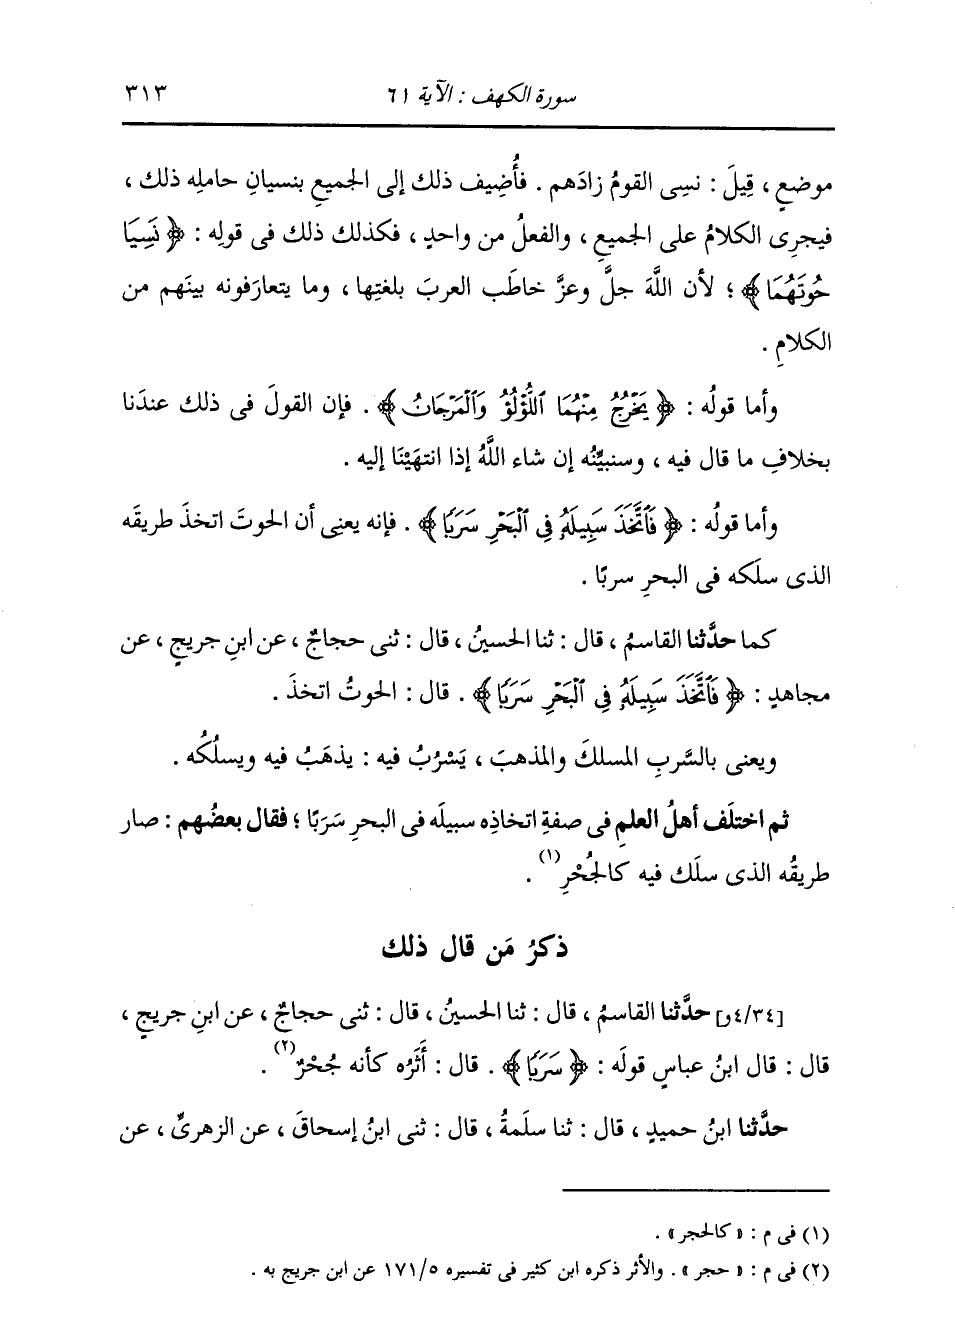 سورة الكهف : الآية ٦١ ٣١٣
موضعٍ ، قِيلَ : نسِى القومُ زادَهم . فأُضِيف ذلك إلى الجميعِ بنسيانِ حاملِه ذلك ،
فيجرِى الكلامُ على الجميعِ ، والفعلُ من واحدٍ ، فكذلك ذلك فى قولِه : ﴿ نَسِيَا
حُوتَهُمَا ﴾ ؛ لأن اللَّهَ جلَّ وعزَّ خاطَب العربَ بلغتِها ، وما يتعارَفونه بينَهم من
الكلامِ .
وأما قولُه : ﴿ يَخْرُجُ مِنْهُمَا ٱللُّؤْلُؤُ وَٱلْمَرْجَانُ ﴾ . فإن القولَ فى ذلك عندَنا
بخلافِ ما قال فيه ، وسنبيِّنُه إن شاء اللَّهُ إذا انتهَيْنَا إليه .
وأما قولُه : ﴿ فَٱتَّخَذَ سَبِيلَهُۥ فِى ٱلْبَحْرِ سَرَبًا ﴾ . فإنه يعنِى أن الحوتَ اتخذَ طريقَه
الذى سلَكه فى البحرِ سربًا .
كما حدَّثنا القاسمُ ، قال : ثنا الحسينُ ، قال : ثنى حجاجٌ ، عن ابنِ جريجٍ ، عن
مجاهدٍ : ﴿ فَٱتَّخَذَ سَبِيلَهُۥ فِى ٱلْبَحْرِ سَرَبًا ﴾ . قال : الحوتُ اتخذَ .
ويعنى بالسَّربِ المسلكَ والمذهبَ ، يَسْرُبُ فيه : يذهَبُ فيه ويسلُكُه .
ثم اختلَف أهلُ العلمِ فى صفةِ اتخاذِه سبيلَه فى البحرِ سَرَبًا ؛ فقال بعضُهم : صار
طريقُه الذى سلَك فيه كالجُحْرِ (١) .
ذكرُ مَن قال ذلك
[٤/٣٤و] حدَّثنا القاسمُ ، قال : ثنا الحسينُ ، قال : ثنى حجاجٌ ، عن ابنِ جريجٍ ،
قال : قال ابنُ عباسٍ قولَه : ﴿ سَرَبًا ﴾ . قال : أَثَرُه كأنه جُحْرٌ (٢) .
حدَّثنا ابنُ حميدٍ ، قال : ثنا سلَمةُ ، قال : ثنى ابنُ إسحاقَ ، عن الزهرىِّ ، عن
(١) فى م : « كالحجر » .
(٢) فى م : « حجر » . والأثر ذكره ابن كثير فى تفسيره ١٧١/٥ عن ابن جريج به .